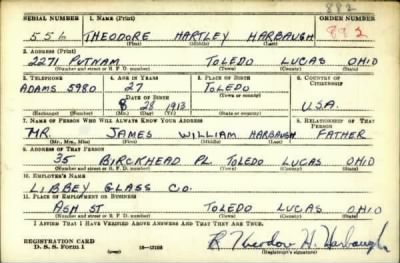 882
SERIAL NUMBER 1. NAME (Print) ORDER NUMBER
556 THEODORE HARTLEY HARBAUGH 892
(First) (Middle) (Last)
2. ADDRESS (Print)
2271 PUTNAM TOLEDO LUCAS OHIO
(Number and street or R. F. D. number) (Town) (County) (State)
3. TELEPHONE 4. AGE IN YEARS 5. PLACE OF BIRTH 6. COUNTRY OF CITIZENSHIP
ADAMS 5980 27 TOLEDO
DATE OF BIRTH (Town or county)
8 28 1913 OHIO U.S.A.
(Exchange) (Number) (Mo.) (Day) (Yr.) (State or country)
7. NAME OF PERSON WHO WILL ALWAYS KNOW YOUR ADDRESS 8. RELATIONSHIP OF THAT PERSON
MR. JAMES WILLIAM HARBAUGH FATHER
(Mr., Mrs., Miss) (First) (Middle) (Last)
9. ADDRESS OF THAT PERSON
35 BIRCKHEAD PL. TOLEDO LUCAS OHIO
(Number and street or R. F. D. number) (Town) (County) (State)
10. EMPLOYER'S NAME
LIBBEY GLASS CO.
11. PLACE OF EMPLOYMENT OR BUSINESS
ASH ST TOLEDO LUCAS OHIO
(Number and street or R. F. D. number) (Town) (County) (State)
I AFFIRM THAT I HAVE VERIFIED ABOVE ANSWERS AND THAT THEY ARE TRUE.
REGISTRATION CARD
D. S. S. Form 1 R Theodore H. Harbaugh
(Registrant's signature)